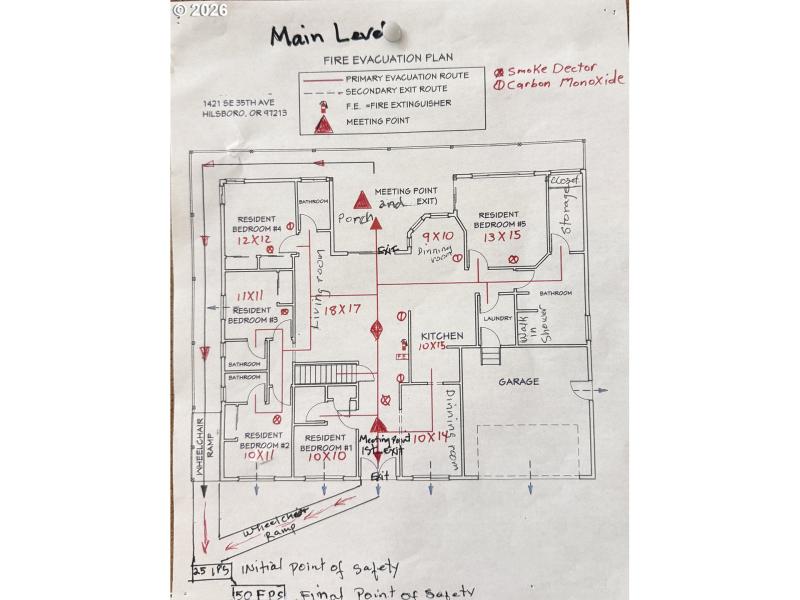 © 2026
Main Level
FIRE EVACUATION PLAN
PRIMARY EVACUATION ROUTE
SECONDARY EXIT ROUTE
F.E. =FIRE EXTINGUISHER
MEETING POINT
Smoke Dector
Carbon Monoxide
1421 SE 35TH AVE
HILSBORO, OR 97213
MEETING POINT
and EXIT)
Porch
Exit
BATHROOM
RESIDENT
BEDROOM #4
12X12
9X10
Dinning
room
RESIDENT
BEDROOM #5
13X15
Closet
Storage
11X11
RESIDENT
BEDROOM #3
Living room
18X17
BATHROOM
Walk
in
Shower
LAUNDRY
KITCHEN
10X15
F.E.
BATHROOM
BATHROOM
GARAGE
RESIDENT
BEDROOM #2
10X11
RESIDENT
BEDROOM #1
10X10
Meeting point
1st exit
Exit
10X14
Dinning room
WHEELCHAIR
RAMP
Wheelchair
Ramp
Initial point of safety
50 FPS Final Point of Safety